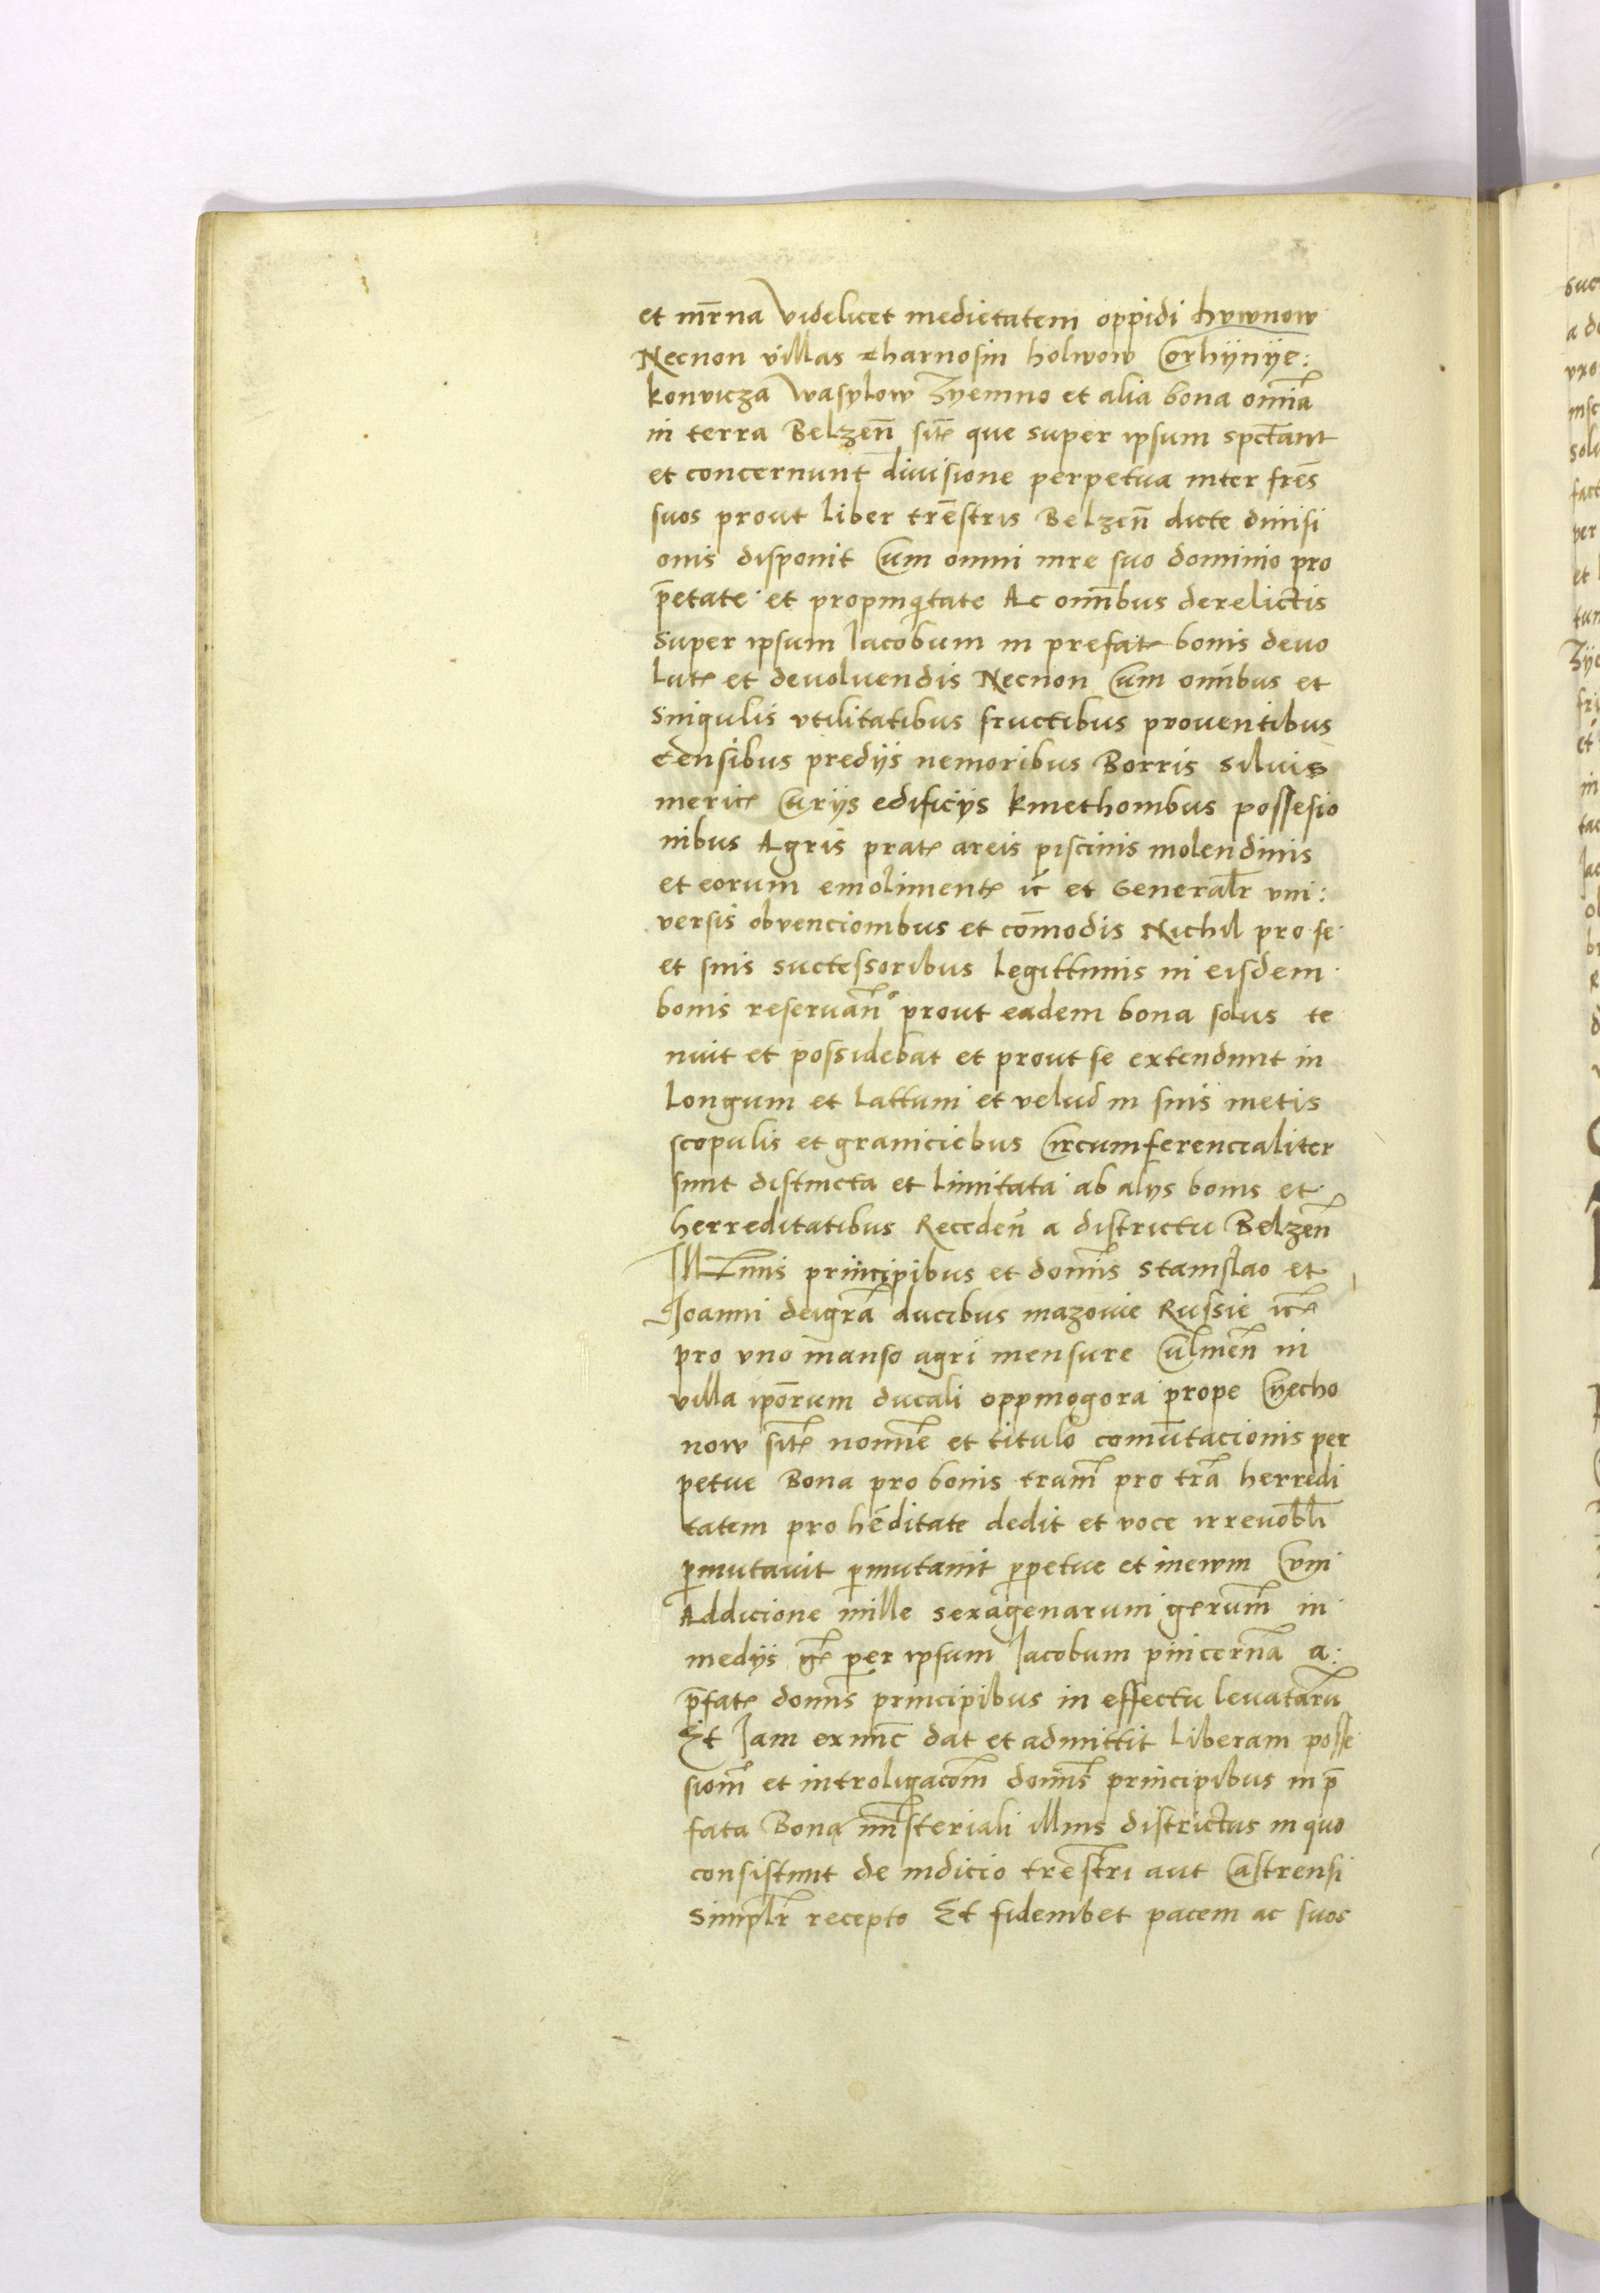 et mr̄na videlicet medietatem oppidi hvwnow
Necnon villas tharnosin holwow Corhÿnÿe:
konvicza wasylow Zyemno et alia bona om̄ia
in terra Belzen̄ sit̄ que super ipsum spc̄tant
et concernunt divisione perpetua inter fr̄es
suos prout liber tr̄estris Belzen̄ dicte divisi
onis disponit Cum omni iure suo dominio pro
p̄etate et propinq̄tate Ac om̄ibus derelictis
super ipsum Jacobum in prefat bonis devo
lut et devoluendis Necnon Cum om̄ibus et
singulis vtilitatibus fructibus proventibus
censibus predÿs nemoribus Borris silvis
meric Curÿs edificÿs kmethonibus possesio
nibus Agris prat areis piscinis molendinis
et eorum emoliment ic̄ et Generalr̄ vni:
versis obvencionibus et com̄odis Nichil pro se
et suis successoribus legittimis in eisdem
bonis reservan̄ prout eadem bona solus te
nuit et possidebat et prout se extendunt in
longum et lattum et velud in suis metis
scopulis et graniciebus Circumferencialiter
sunt distincta et limitata ab alys bonis et
herreditatibus Receden̄ a districtu Belzen̄
Ill̄mis principibus et dom̄is Stanislao et
Joanni deigrā ducibus mazovie Russie ic̄
pro vno manso agri mensure Culmen̄ in
villa ip̄orum ducali oppinogora prope Cyecho
now sit̄ nomīe et titulo com̄utacionis per
petue Bona pro bonis tram̄ pro trā herredi
tatem pro hēditate dedit et voce irrevobl̄i
p̄mutavit p̄mutavit p̄petue et inewm Cum
Addicione mille sexagenarum gerum̄ in
medÿs gr̄ per ipsum Jacobum pincernā a:
p̄fat dom̄is principibus in effectu levatarū
Et Jam exnunc̄ dat et admittit liberam posse
siom̄ et introligacom̄ dom̄is principibus in p̄
fata Bona mīsteriali illius districtus in quo
consistunt de iudicio tr̄estri aut Castrensi
simplr̄ recepto Et fideiubet pacem ac suos